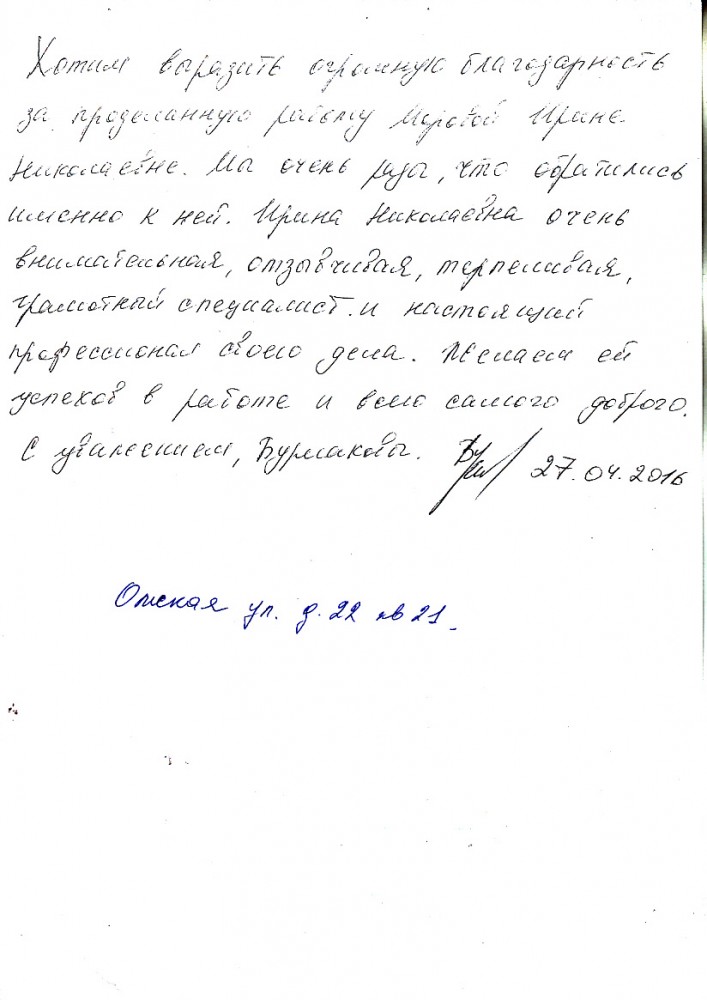 Хотим выразить огромную благодарность
за проделанную работу Меровой Ирине
Николаевне. Мы очень рады, что обратились
именно к ней. Ирина Николаевна очень
внимательная, отзывчивая, терпеливая,
грамотный специалист. и настоящий
профессионал своего дела. Желаем ей
успехов в работе и всего самого доброго.
С уважением, Бурмаковы. 27.04.2016
Омская ул. д. 22 кв 21.